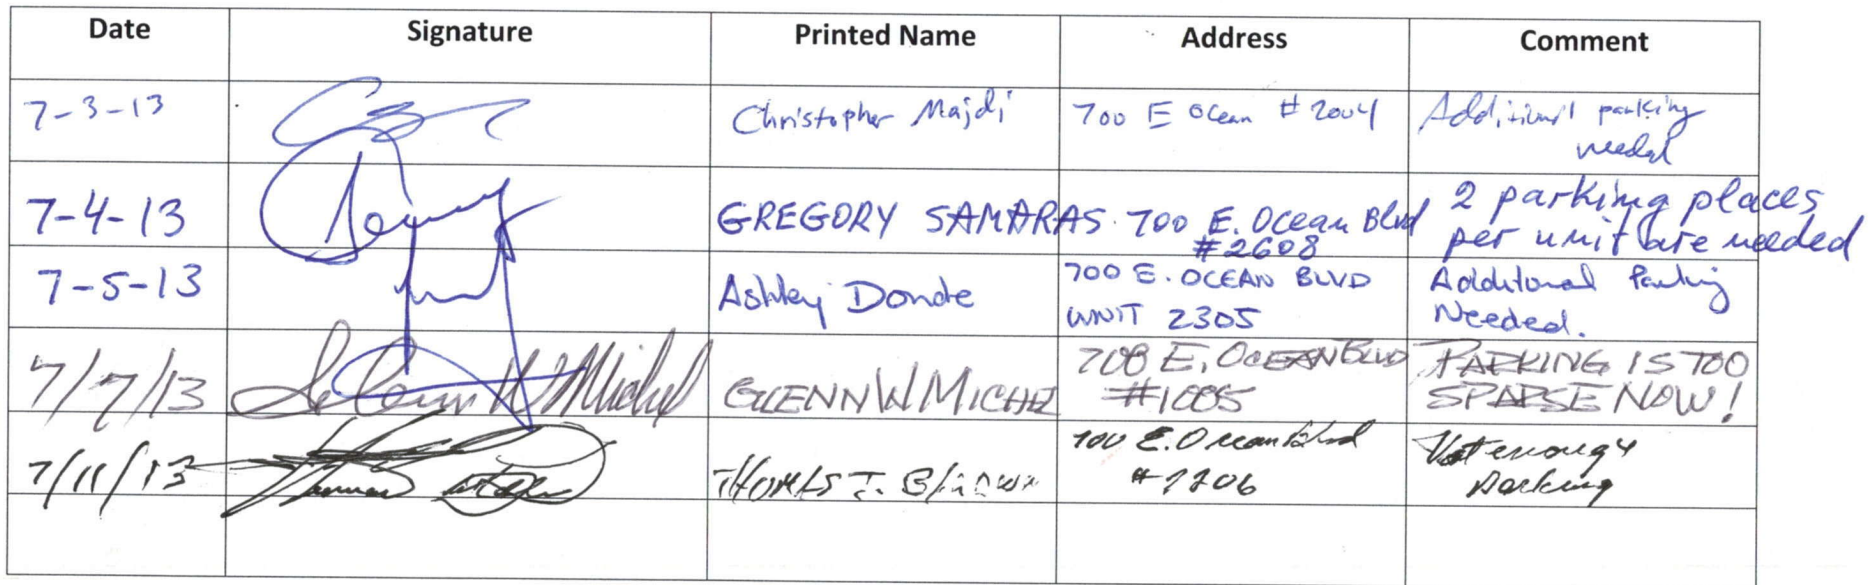 Date Signature Printed Name Address Comment
7-3-13 Christopher Majdi 700 E Ocean #2004 Additional parking
needed
7-4-13 GREGORY SAMARAS. 700 E. Ocean Blvd 2 parking places
#2608 per unit are needed
7-5-13 Ashley Donde 700 E. OCEAN BLVD Additional Parking
UNIT 2305 Needed.
7/7/13 Glenn W Michel GLENN W MICHEL 700 E, OCEAN BLVD PARKING IS TOO
#1005 SPARSE NOW!
7/11/13 Thomas THOMAS J. 700 E. Ocean Blvd Not enough
parking